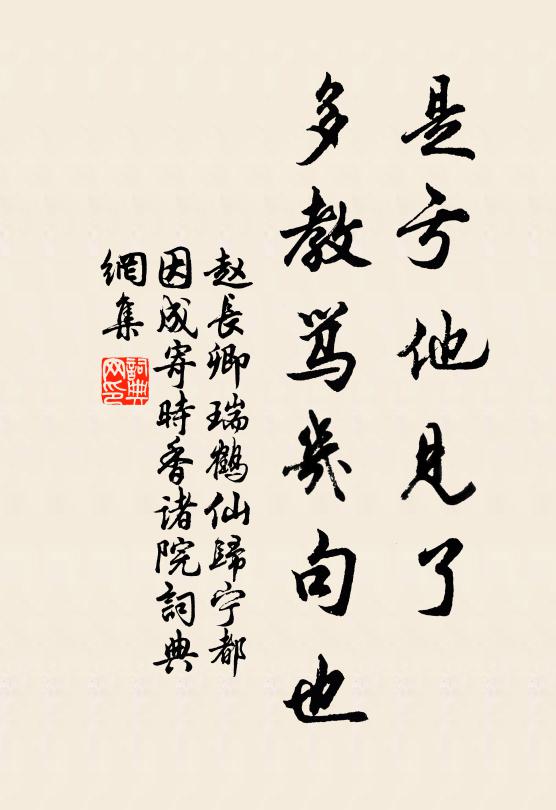 是亏他见了
多教骂几句也
赵長卿瑞鶴仙歸宁都
因成寄時香诸院詞典
網集
詞典网印